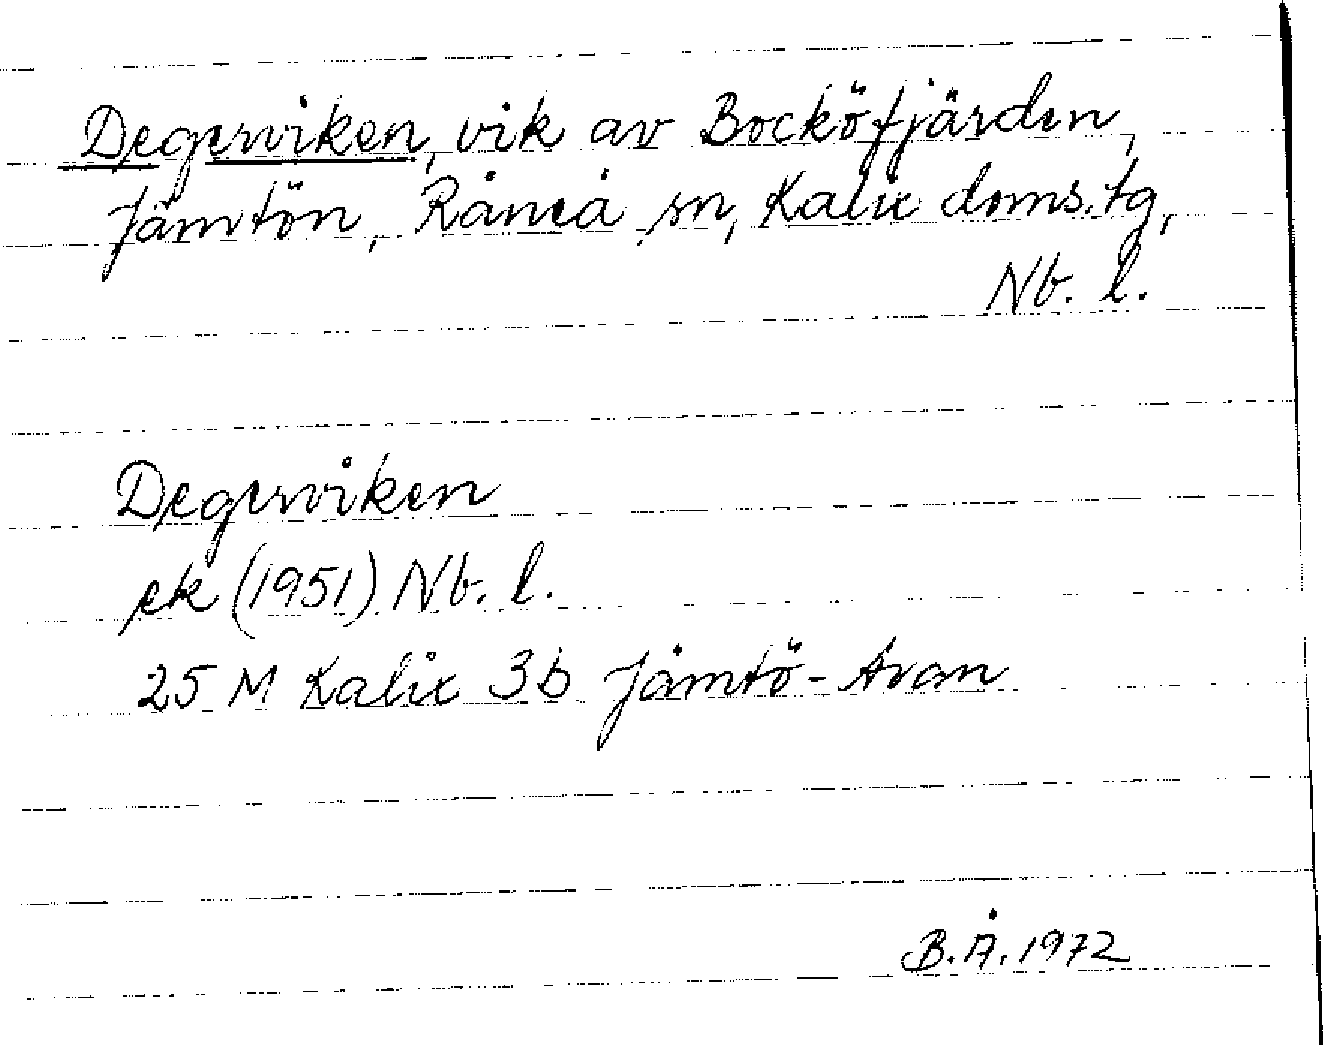 Degerviken, vik av Bocköfjärden,
Jämtön, Råneå sn, Kalix doms.tg,
Nb. l.
Degerviken
ek (1951) Nb. l.
25 M Kalix 3b Jämtö-Avan
B.Å. 1972